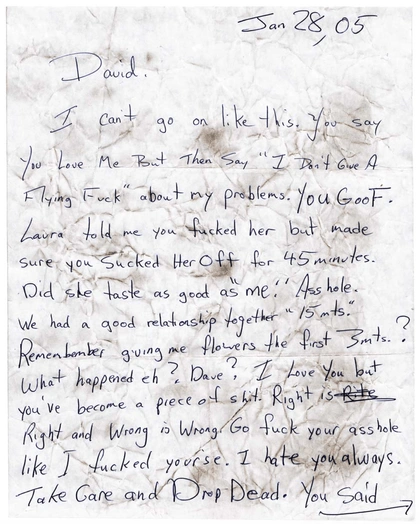 Jan 28, 05
David.
I can't go on like this. You say
You Love Me But Then Say "I Don't Give A
Flying Fuck" about my problems. You GooF.
Laura told me you fucked her but made
sure you Sucked Her Off for 45 minutes.
Did she taste as good as "me." Ass hole.
We had a good relationship together "15 mts."
Rememember giving me flowers the first 3mts. ?
What happened eh? Dave? I Love You but
you've become a piece of shit. Right is
Right and Wrong is Wrong. Go fuck your asshole
like I fucked yourse. I hate you always.
Take Care and Drop Dead. You Said